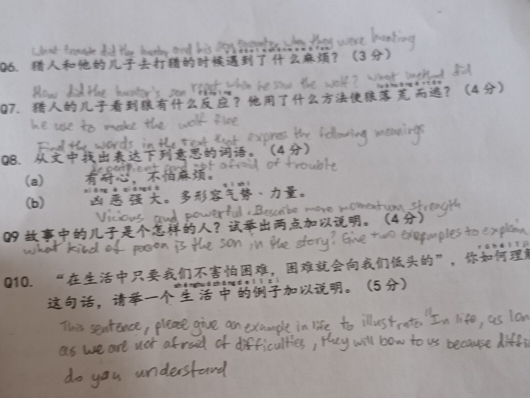 What trouble did the hunter and his son encounter when they were hunting
Q6. 猎人和他的儿子去打猎的时候遇到了什么麻烦？（3分）
How did the hunter's son react when he saw the wolf? What method did
Q7. 猎人的儿子看到狼有什么反应？他用了什么方法使狼落荒而逃？（4分）
he use to make the wolf flee
Find the words in the text that express the following meanings
Q8. 从文中找出表达下列意思的词语。（4分）
Be patient and not afraid of trouble
(a) 有耐心，不怕麻烦。
(b) 凶恶强大。多形容气势、力量。
Vicious and powerful. Describe more momentum, strength
Q9 故事中的儿子是个怎样的人？试举出两点加以说明。（4分）
What kind of person is the son in the story? Give two examples to explain
Q10. “在生活中只要我们不害怕困难，困难就会向我们低头的”，你如何理解
shēng huó zhōng de lì zi
这句话，请举一个生活中的例子加以说明。（5分）
This sentence, please give an example in life to illustrate "In life, as long
as we are not afraid of difficulties, they will bow to us because
do you understand